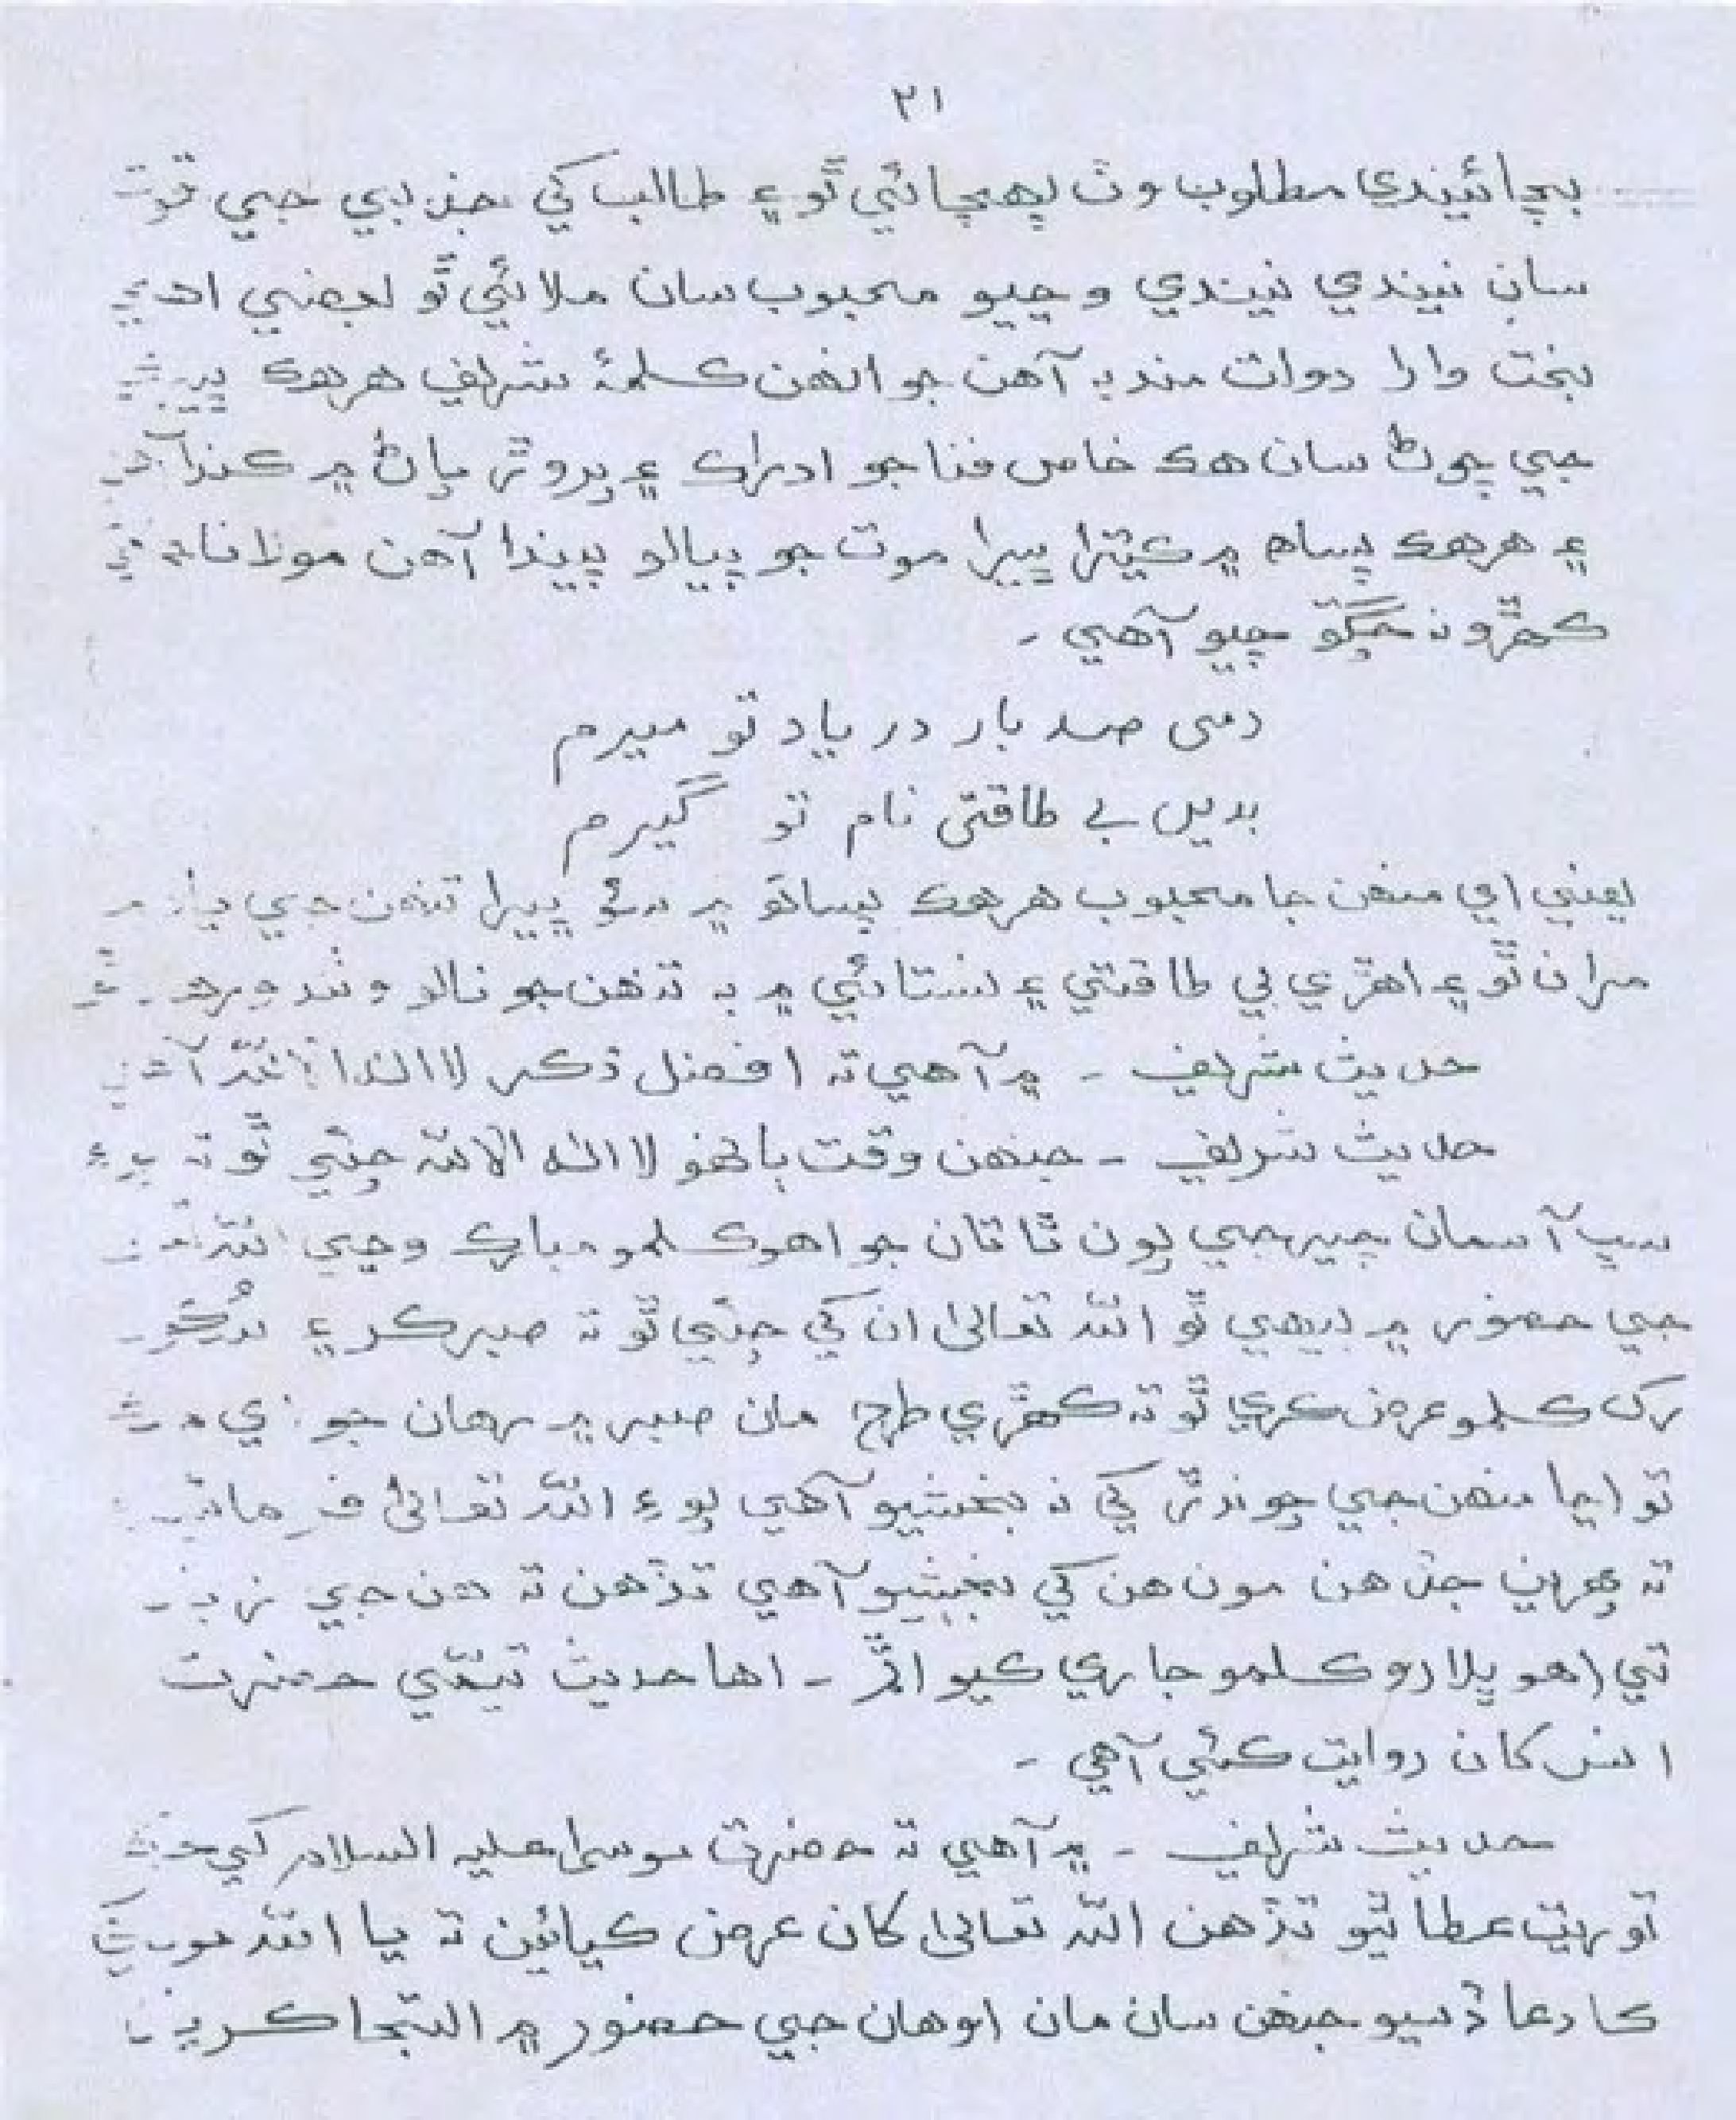 ٢١
بچائيندي مطلوب وٽ پهچائي ٿو ۽ طالب کي جذبي جي قوت
سان نيندي نيندي وڃيو محبوب سان ملائي ٿو بعضي
بخت وارا دولت مند به آهن جو انهن ڪلمهٔ شريف هرهڪ
جي چوڻ سان هڪ خاص فنا جو ادراڪ ۽ پروڙ پاڻ ۾ ڪندا
۽ هرهڪ پساهه ۾ ڪيترا ڀيرا موت جو پيالو پيندا آهن مولانا
ڪهڙو نه چڱو چيو آهي -
دمی صد بار در یاد تو میرم
بدیں بے طاقتی نام تو گیرم
يعني اي منهن جا محبوب هرهڪ پساهه ۾ سؤ ڀيرا تنهن جي
مران ٿو ۽ اهڙي بي طاقتي ۽ سستائي ۾ به تنهن جو نالو وٺندو رهـ
حديث شريف - ۾ آهي ته افضل ذڪر لا اله الا الله
حديث شريف - جنهن وقت ٻانهو لا اله الا الله چئي ٿو ته
سڀ آسمان چيرجي پون ٿا تان جو اهو ڪلمو مبارڪ وڃي
جي حضور ۾ بيهي ٿو الله تعاليٰ ان کي چئي ٿو ته صبر ڪر ۽
ڪلمو عرض ڪري ٿو ته ڪهڙي طرح مان صبر ۾ رهان جو
تو اڃا منهن جي چوندڙ کي نه بخشيو آهي پوءِ الله تعاليٰ
ته جڏهن مون هن کي بخشيو آهي تڏهن ته هن جي
تي اهو ڀلارو ڪلمو جاري ڪيو اٿم - اها حديث حضرت
انس کان روايت ڪئي آهي -
حديث شريف - ۾ آهي ته حضرت موسيٰ عليه السلام کي
توريت عطا ٿيو تڏهن الله تعاليٰ کان عرض ڪيائين ته يا الله
ڪا دعا ڏسيو جنهن سان مان اوهان جي حضور ۾ التجا ڪريان